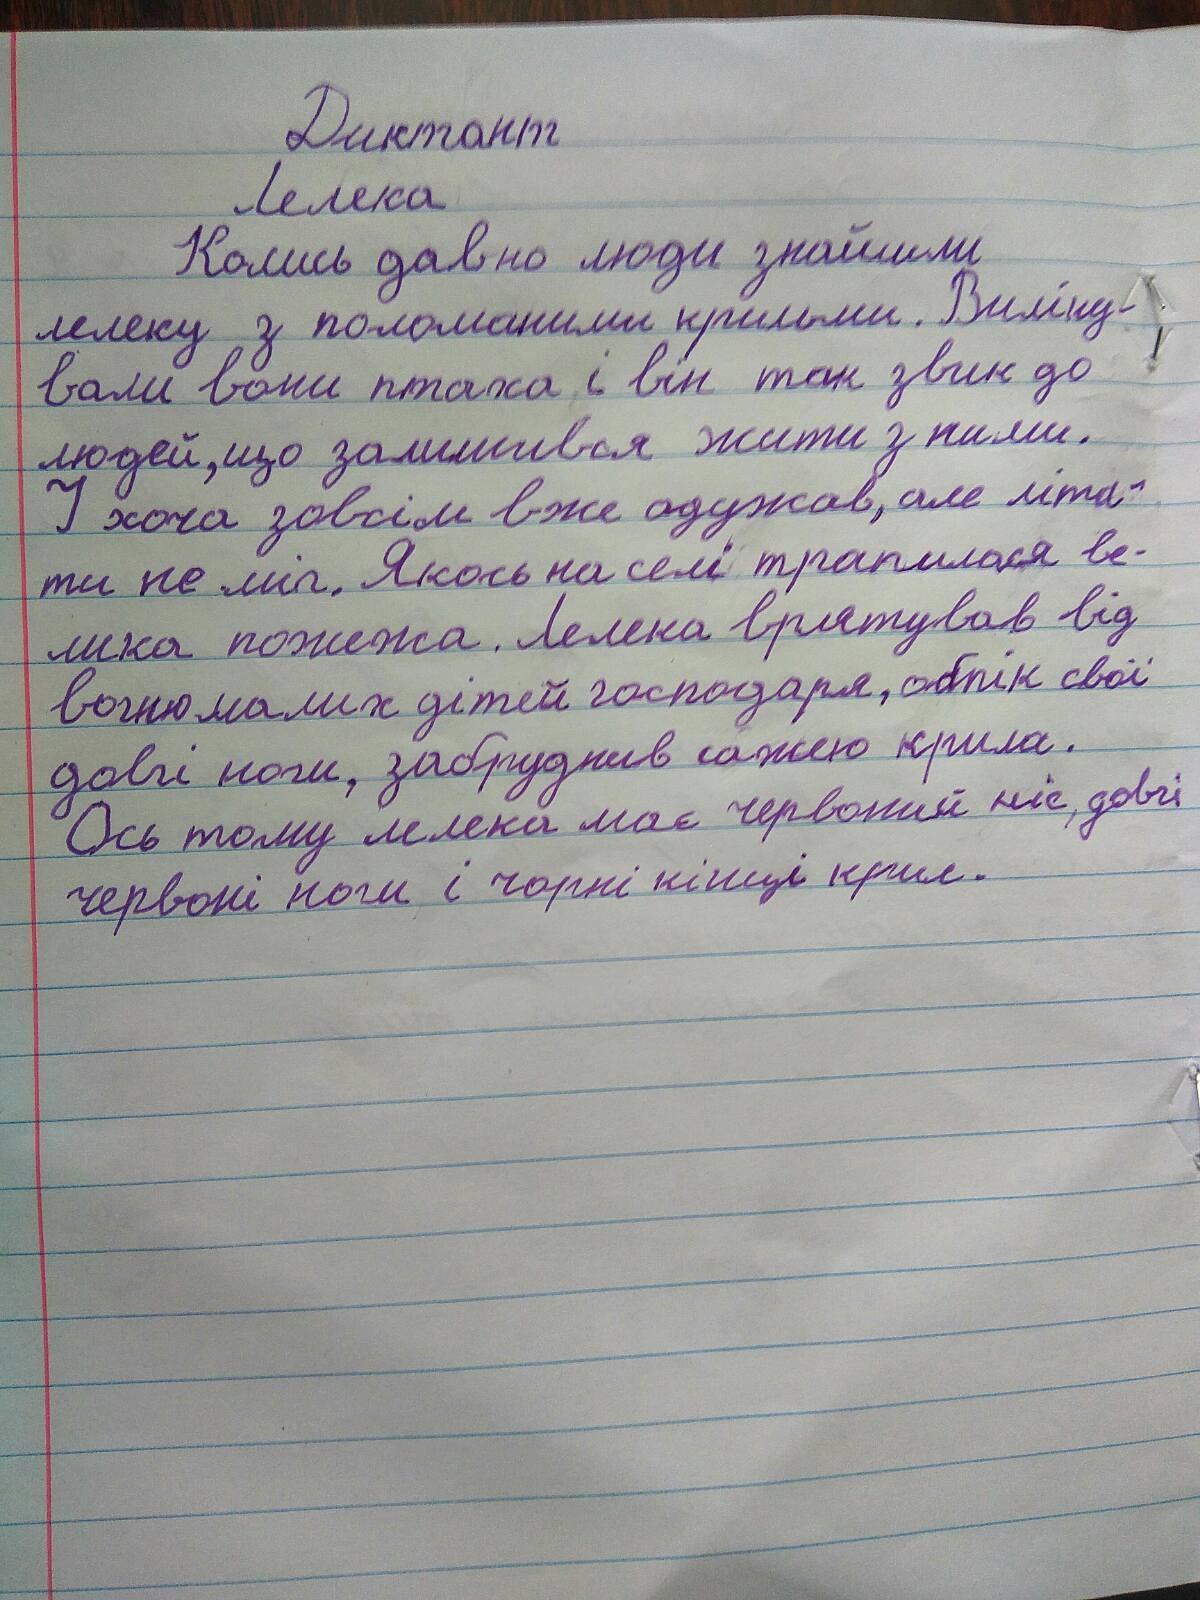 Диктант
Лелека
Колись давно люди знайшли
лелеку з поломаними крильми. Виліку-
вали вони птаха і він так звик до
людей, що залишився жити з ними.
І хоча зовсім вже одужав, але літа-
ти не міг. Якось на селі трапилося ве-
лика пожежа. Лелека врятував від
вогню малих дітей господаря, обпік свої
довгі ноги, забруднив сажею крила.
Ось тому лелека має червоний ніс, довгі
червоні ноги і чорні кінці крил.